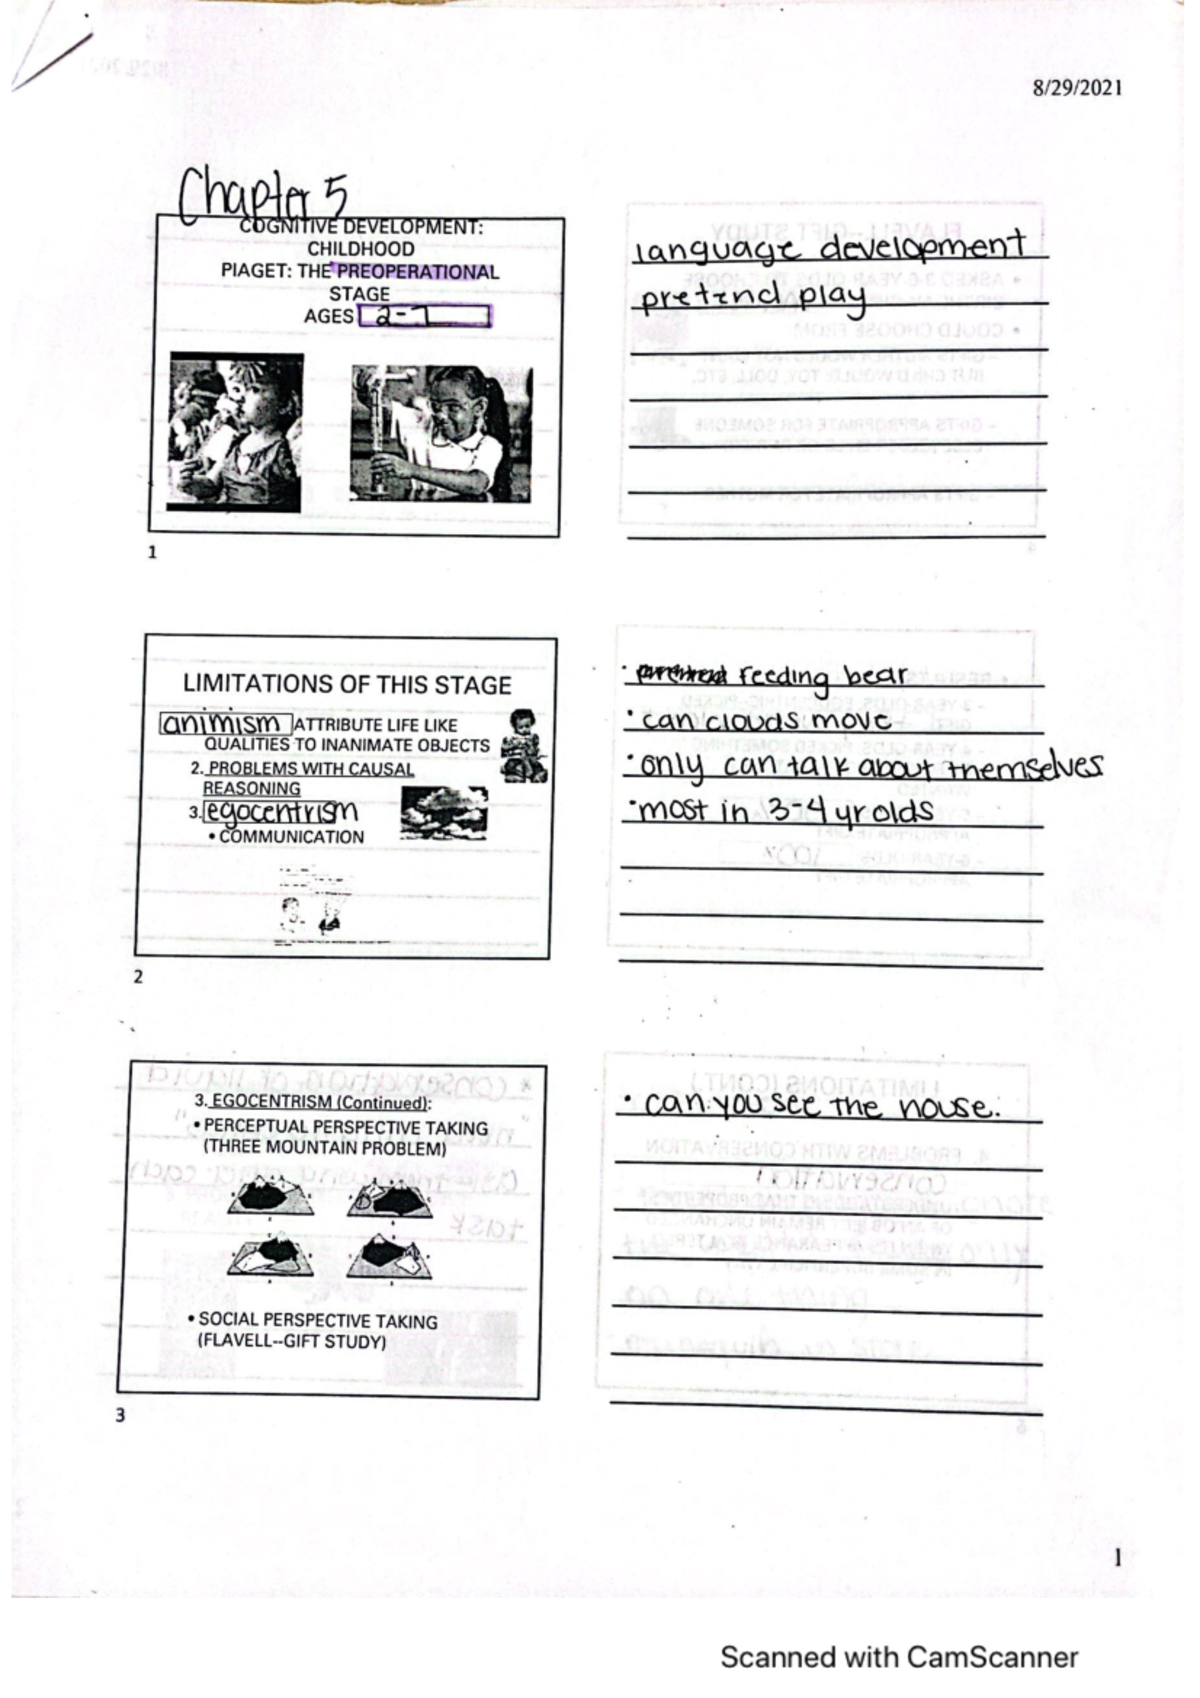 8/29/2021
Chapter 5
COGNITIVE DEVELOPMENT:
CHILDHOOD
PIAGET: THE PREOPERATIONAL
STAGE
AGES 2-7
language development
pretend play
1
LIMITATIONS OF THIS STAGE
animism ATTRIBUTE LIFE LIKE
QUALITIES TO INANIMATE OBJECTS
2. PROBLEMS WITH CAUSAL
REASONING
3. egocentrism
• COMMUNICATION
• feeding bear
• can clouds move
• only can talk about themselves
• most in 3-4 yr olds
2
3. EGOCENTRISM (Continued):
• PERCEPTUAL PERSPECTIVE TAKING
(THREE MOUNTAIN PROBLEM)
• SOCIAL PERSPECTIVE TAKING
(FLAVELL--GIFT STUDY)
• can you see the house.
3
1
Scanned with CamScanner